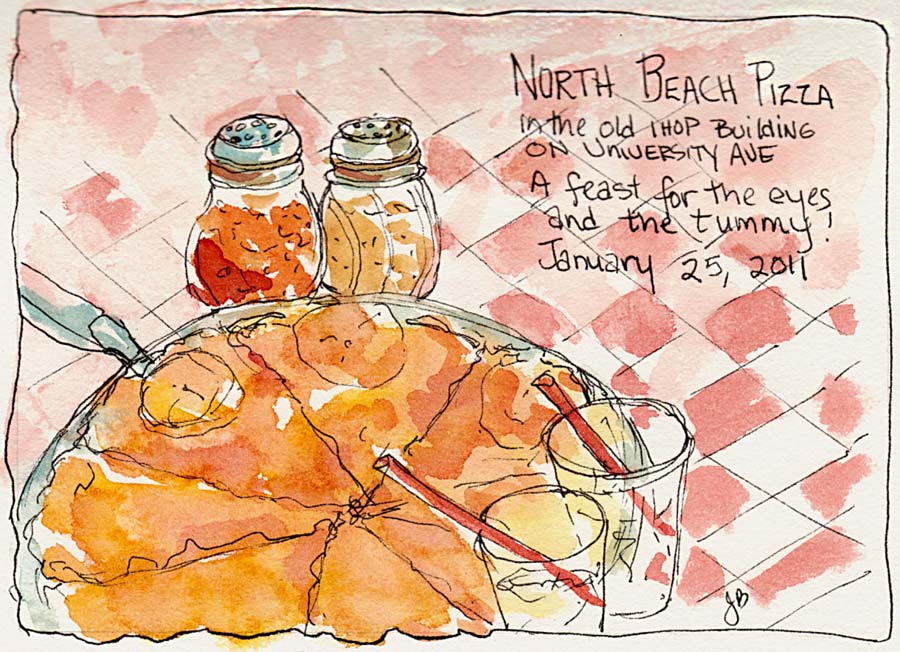 NORTH BEACH PIZZA
in the old IHOP BuilDiNG
ON UNIVERSITY AVE
A feast for the eyes
and the tummy!
January 25, 2011
JB